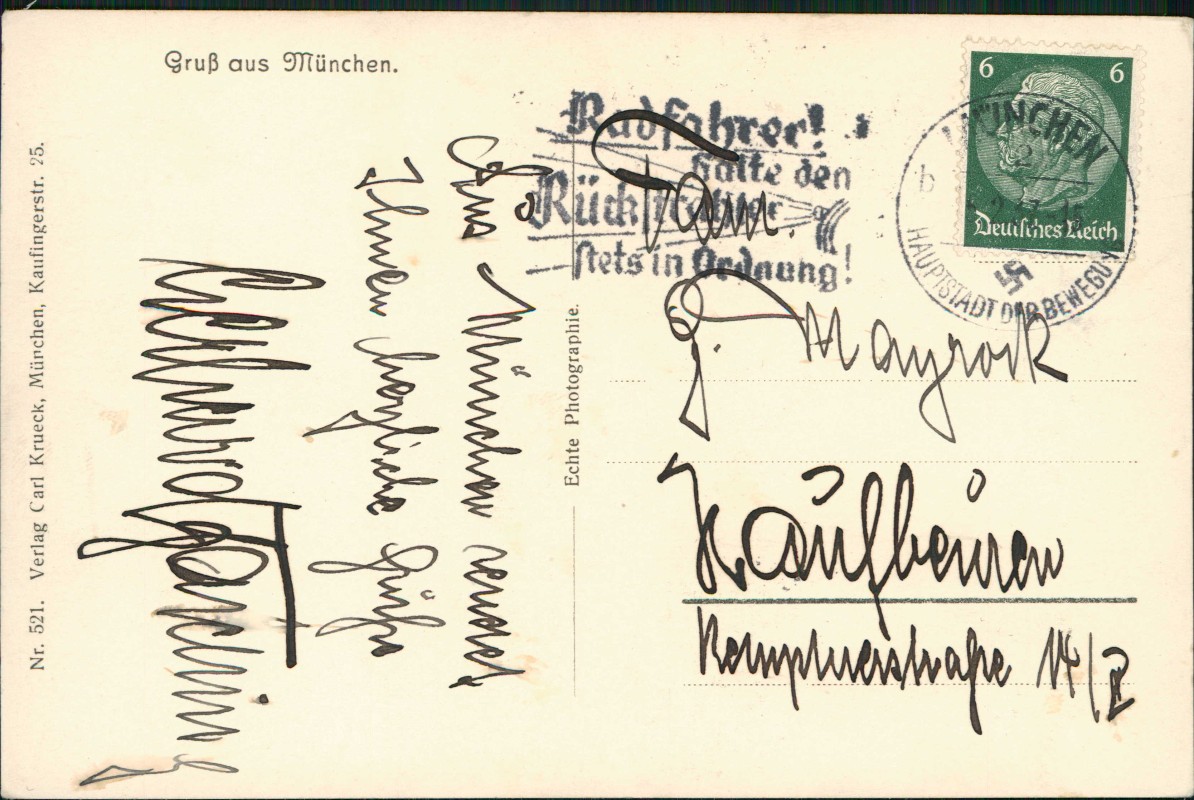 Gruß aus München.
Nr. 521. Verlag Carl Krueck, München, Kaufingerstr. 25.
Echte Photographie.
Aus München sendet
Ihnen herzliche Grüße
6 6
Deutsches Reich
MÜNCHEN
b
HAUPTSTADT DER BEWEGUNG
Radfahrer!
Halte den
Rückstrahler
stets in Ordnung!
Fam.
G. Mayrock
Kaufbeuren
Kemptnerstraße 14/II